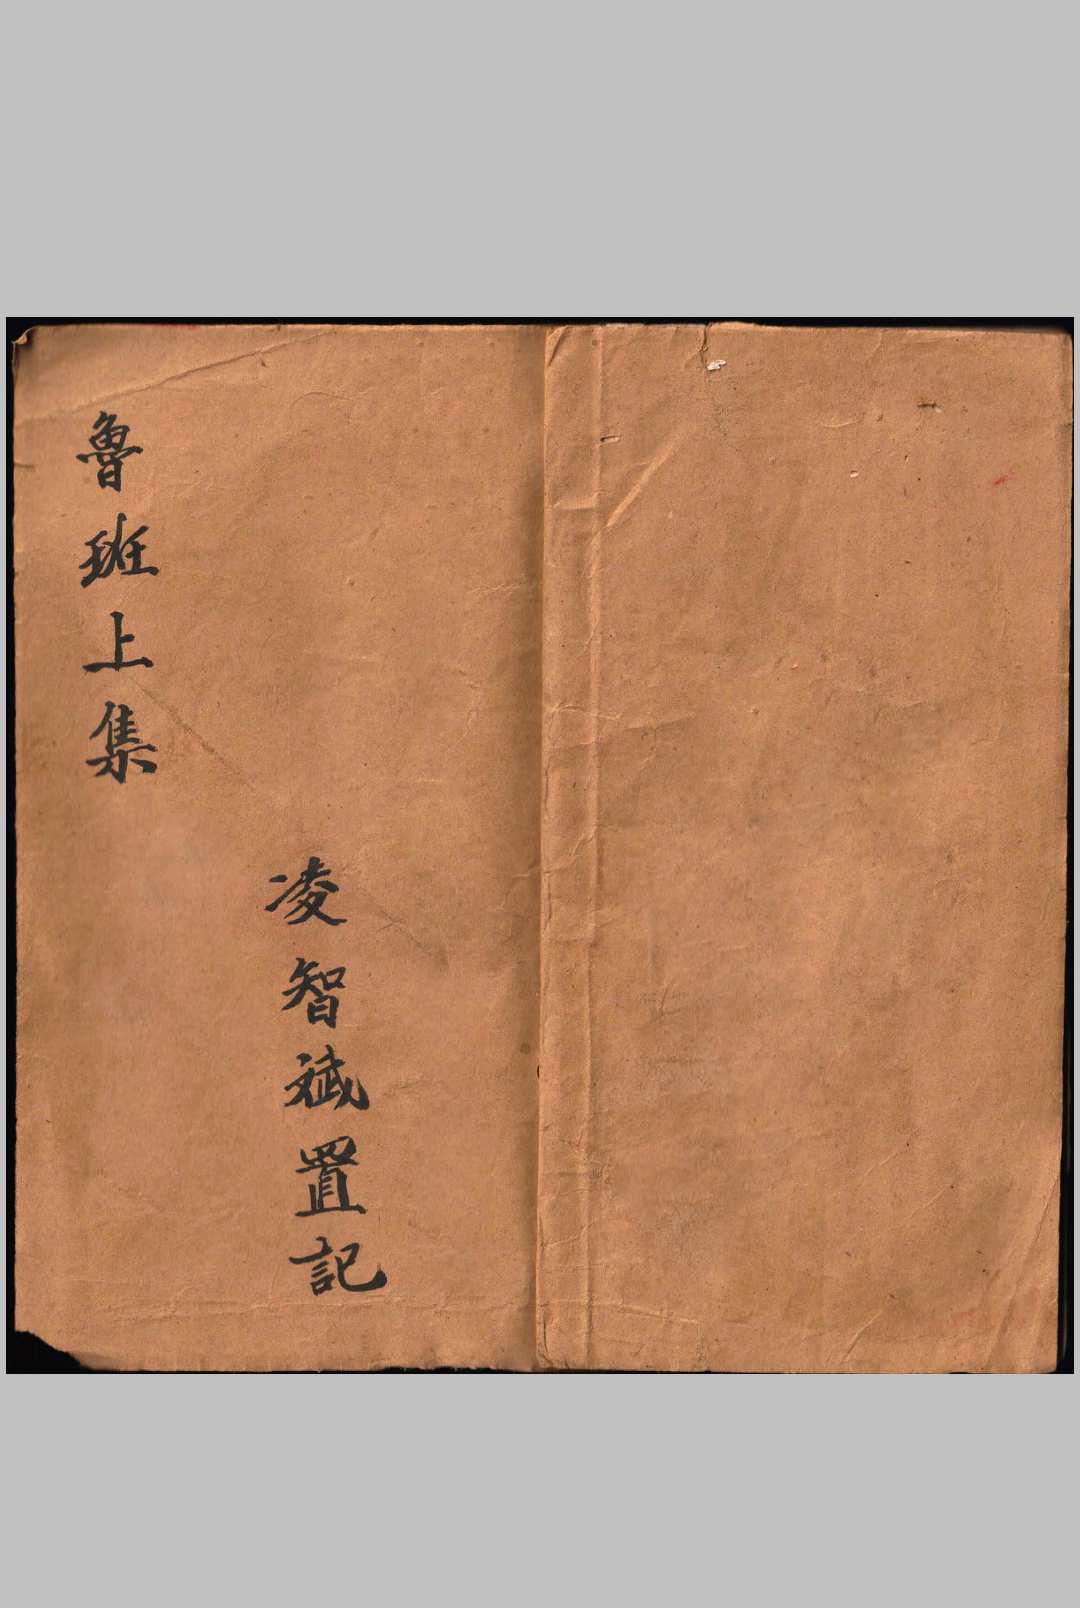 魯班上集
凌智斌置記